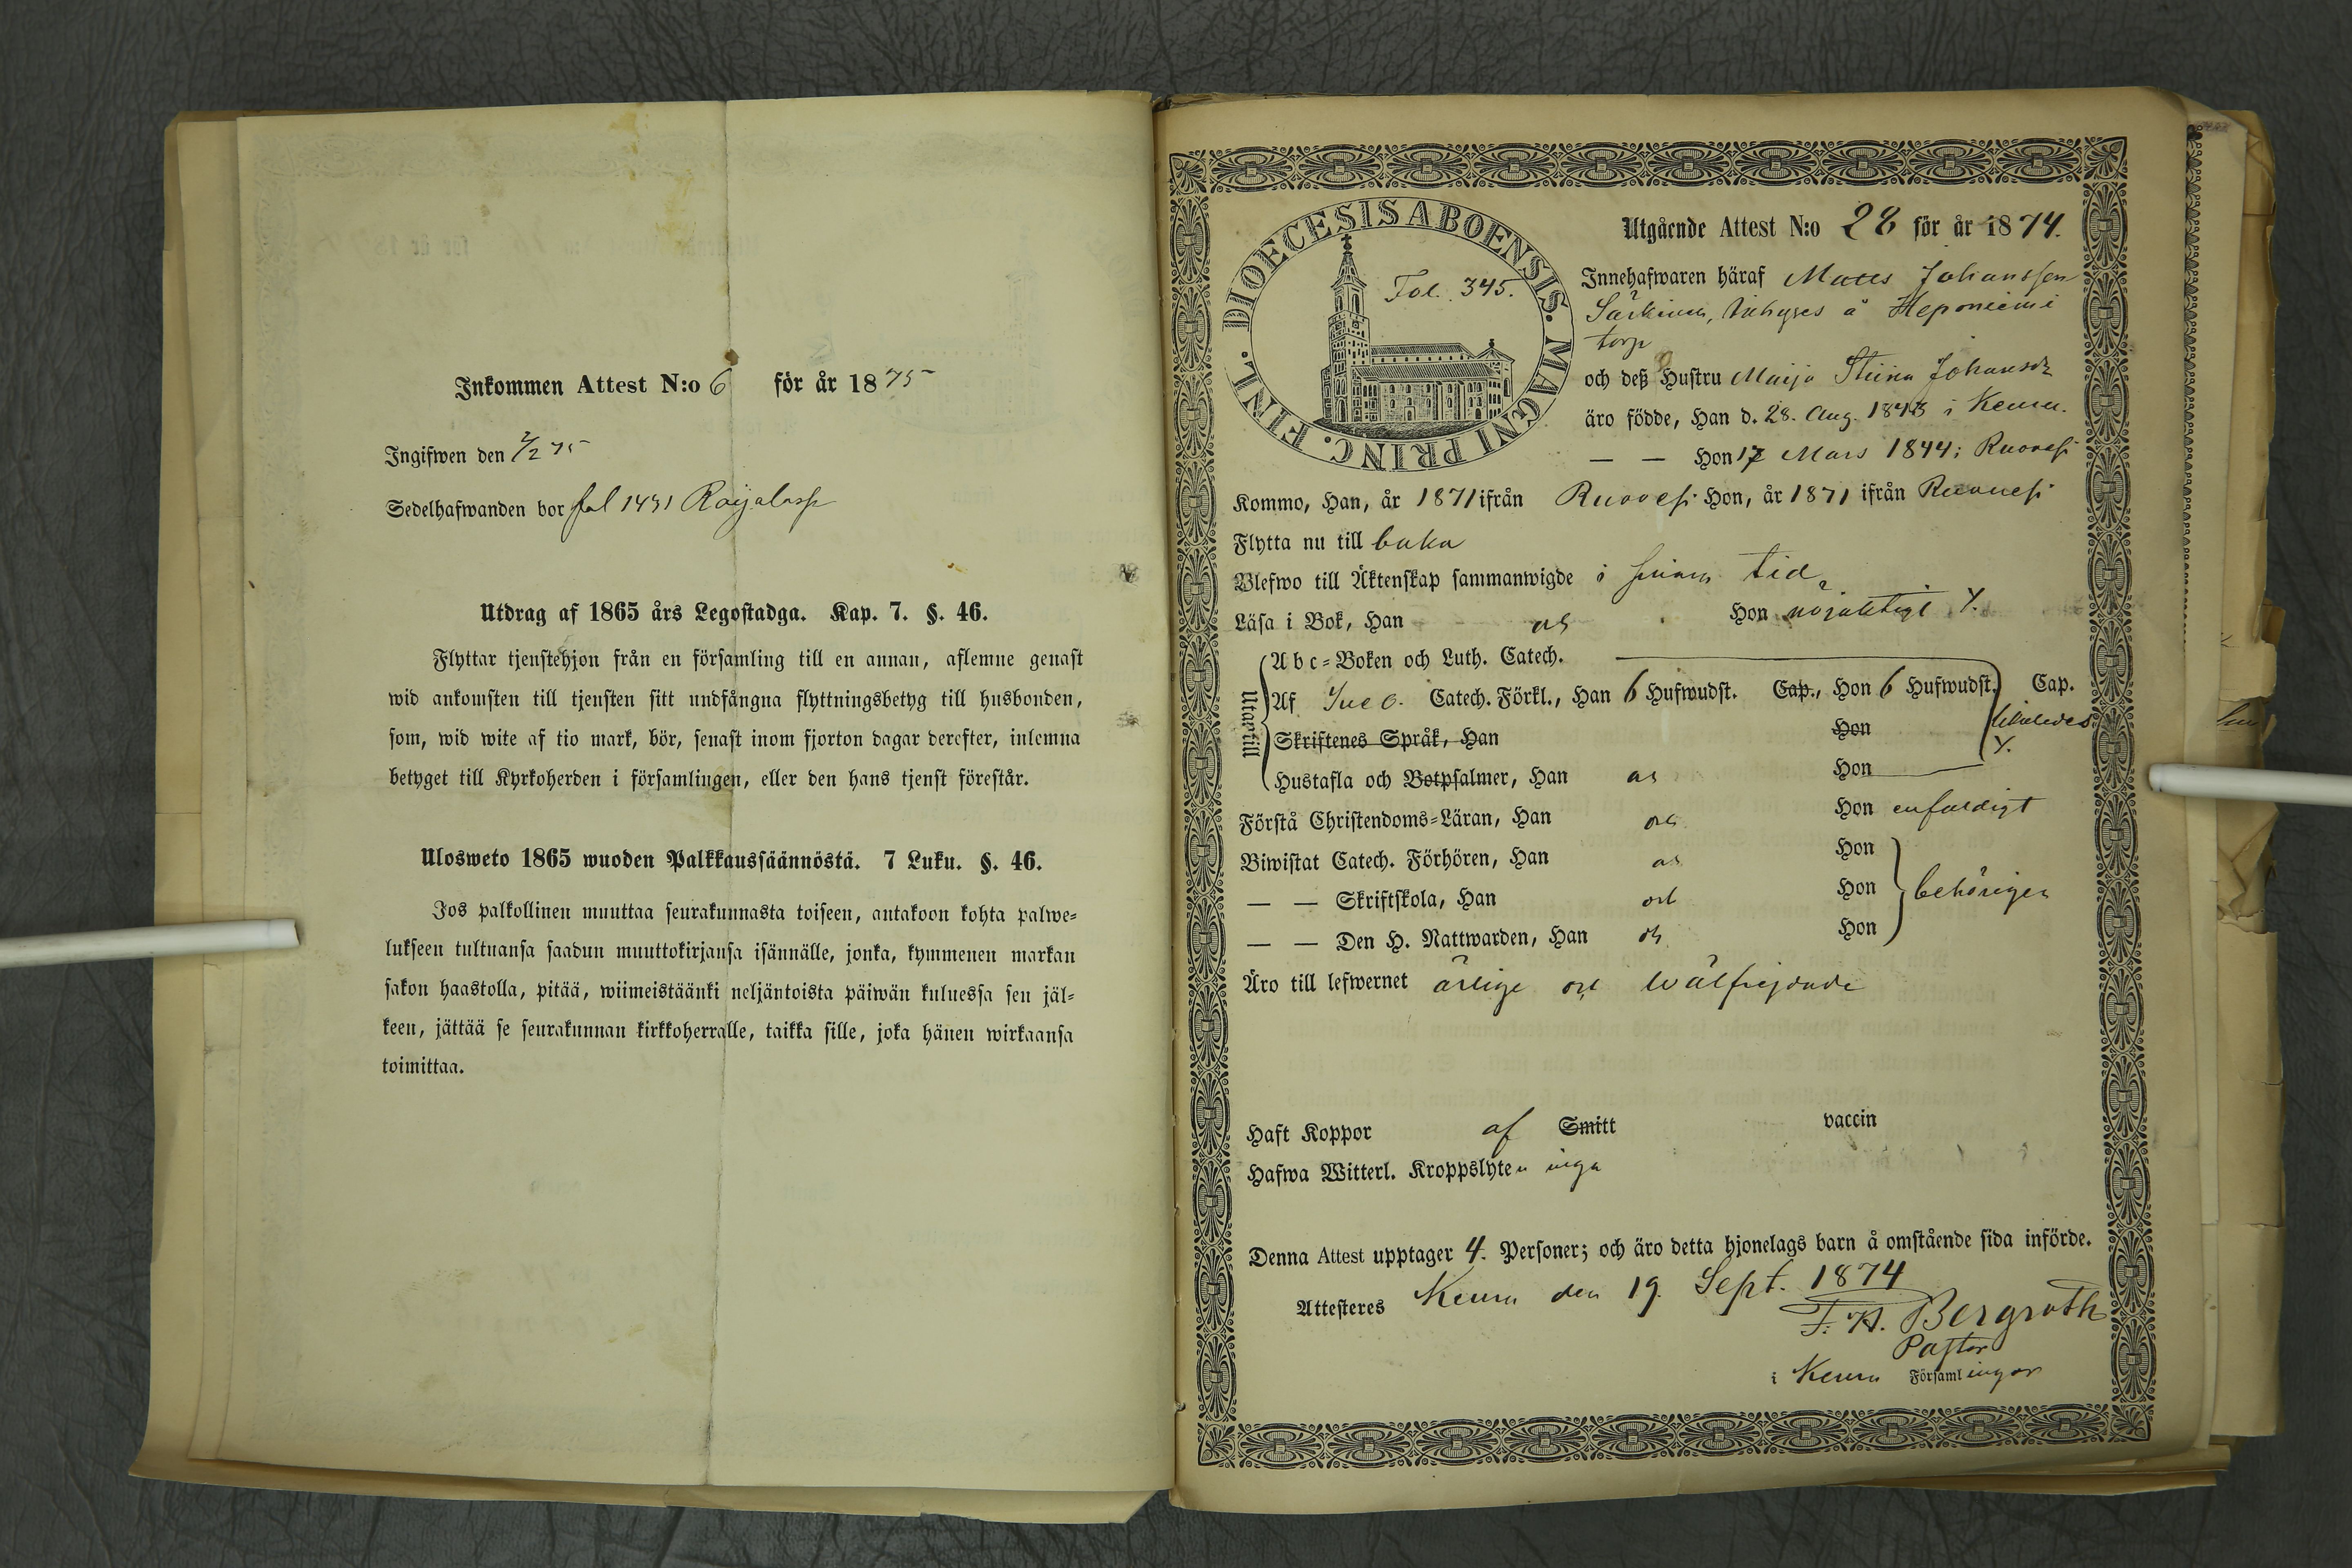 Inkommen Attest N:o 6 för år 1875
Ingifwen den 2/2 75
Sedelhafwanden bor fol 1431
Utdrag af 1865 års Legostadga. Kap. 7. §. 46.
Flyttar tjenstehjon från en församling till en annan, aflemne genast
wid ankomsten till tjensten sitt undfångna flyttningsbetyg till husbonden,
som, wid wite af tio mark, bör, senast inom fjorton dagar derefter, inlemna
betyget till Kyrkoherden i församlingen, eller den hans tjenst förestår.
Ulosweto 1865 wuoden Palkkaussäännöstä. 7 Luku. §. 46.
Jos palkollinen muuttaa seurakunnasta toiseen, antakoon kohta palwe-
lukseen tultuansa saadun muuttokirjansa isännälle, jonka, kymmenen markan
sakon haastolla, pitää, wiimeistäänki neljäntoista päiwän kuluessa sen jäl-
keen, jättää se seurakunnan kirkkoherralle, taikka sille, joka hänen wirkaansa
toimittaa.
DIOECESIS ABOENSIS. MAGNI PRINC. FINL.
Fol. 345.
Utgående Attest N:o 28 för år 1874.
Innehafwaren häraf Matts Johansson
Särkinen, Inhyses å Heponiemi
torp
och deß Hustru Maija Stina Johansdr
äro födde, Han d. 28. Aug. 1843 i Keuru.
— — Hon 17 Mars 1844 i Ruovesi
Kommo, Han, år 1871 ifrån Ruovesi Hon, år 1871 ifrån Ruovesi
Flytta nu till baka
Blefwo till Äktenskap sammanwigde i sinom tid
Läsa i Bok, Han och Hon nöjaktigt
Utantill
Abc-Boken och Luth. Catech.
Af Catech. Förkl., Han 6 Hufwudst. Cap., Hon 6 Hufwudst. Cap.
likaledes
Skriftenes Språk, Han Hon
Hustafla och Botpsalmer, Han och Hon
Förstå Christendoms-Läran, Han och Hon enfaldigt
Biwistat Catech. Förhören, Han och Hon
— — Skriftskola, Han och Hon behörigen
— — Den H. Nattwarden, Han och Hon
Äro till lefwernet ärlige och wälfrejdade
Haft Koppor af Smitt vaccin
Hafwa Witterl. Kroppslyten inga
Denna Attest upptager 4. Personer; och äro detta hjonelags barn å omstående sida införde.
Attesteres Keuru den 19. Sept. 1874
F. H. Bergroth
Pastor
i Keuru Församlingar